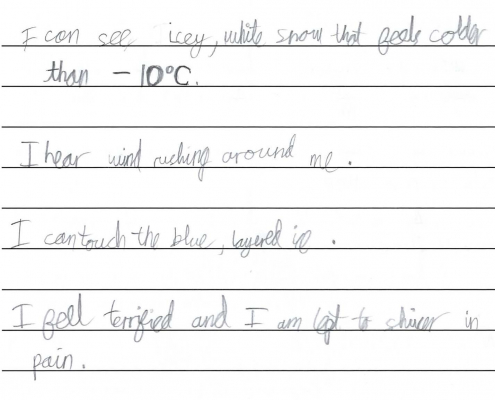 I can see icey, white snow that feels colder
than -10°C.
I hear wind ruching around me.
I can touch the blue, layered ice.
I feel terrified and I am left to shiver in
pain.